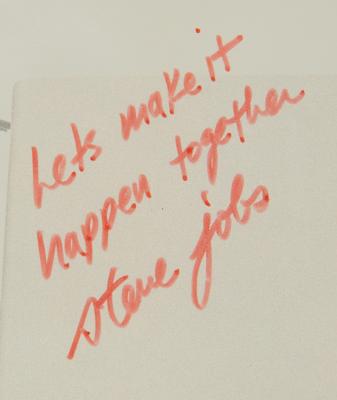 Lets make it
happen together
steve jobs